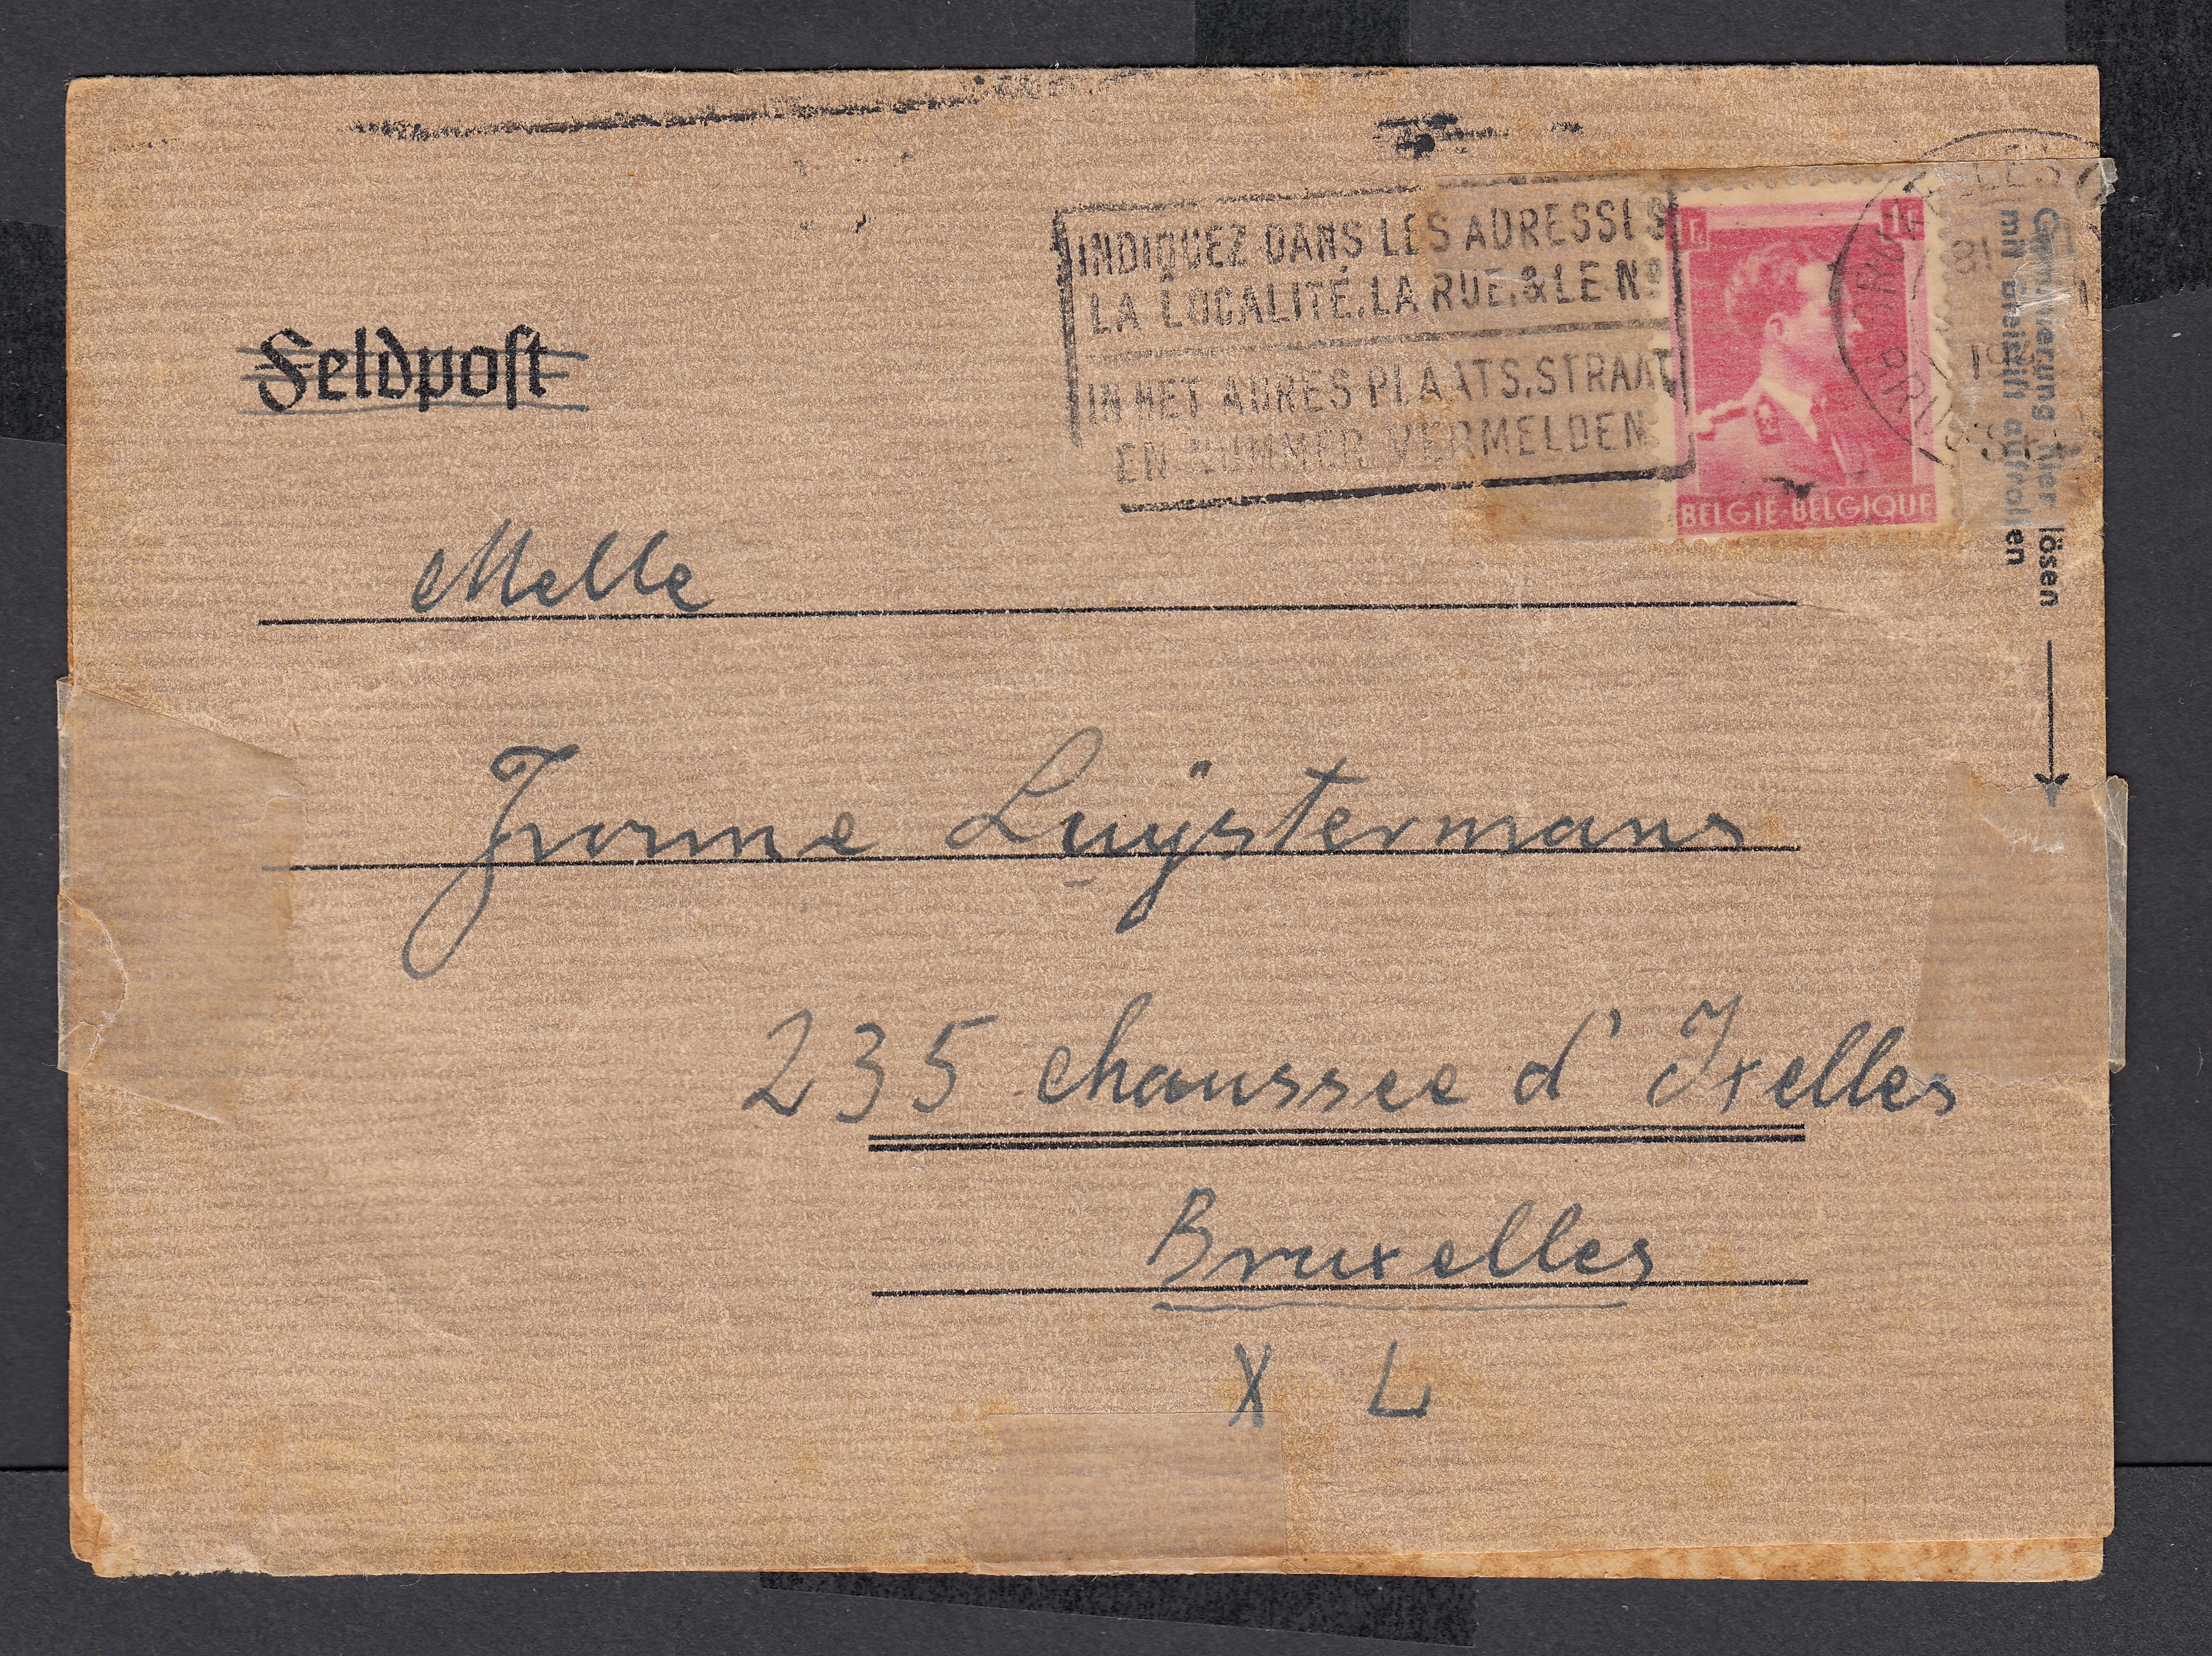 INDIQUEZ DANS LES ADRESSES
LA LOCALITÉ, LA RUE, & LE Nº
IN HET ADRES PLAATS, STRAAT
EN NUMMER VERMELDEN
1F 1F
BELGIË-BELGIQUE
Gummierung hier lösen
mit Bleistift aufrollen
Feldpost
Melle
Yvonne Luÿstermans
235 chaussee d'Ixelles
Bruxelles
X L